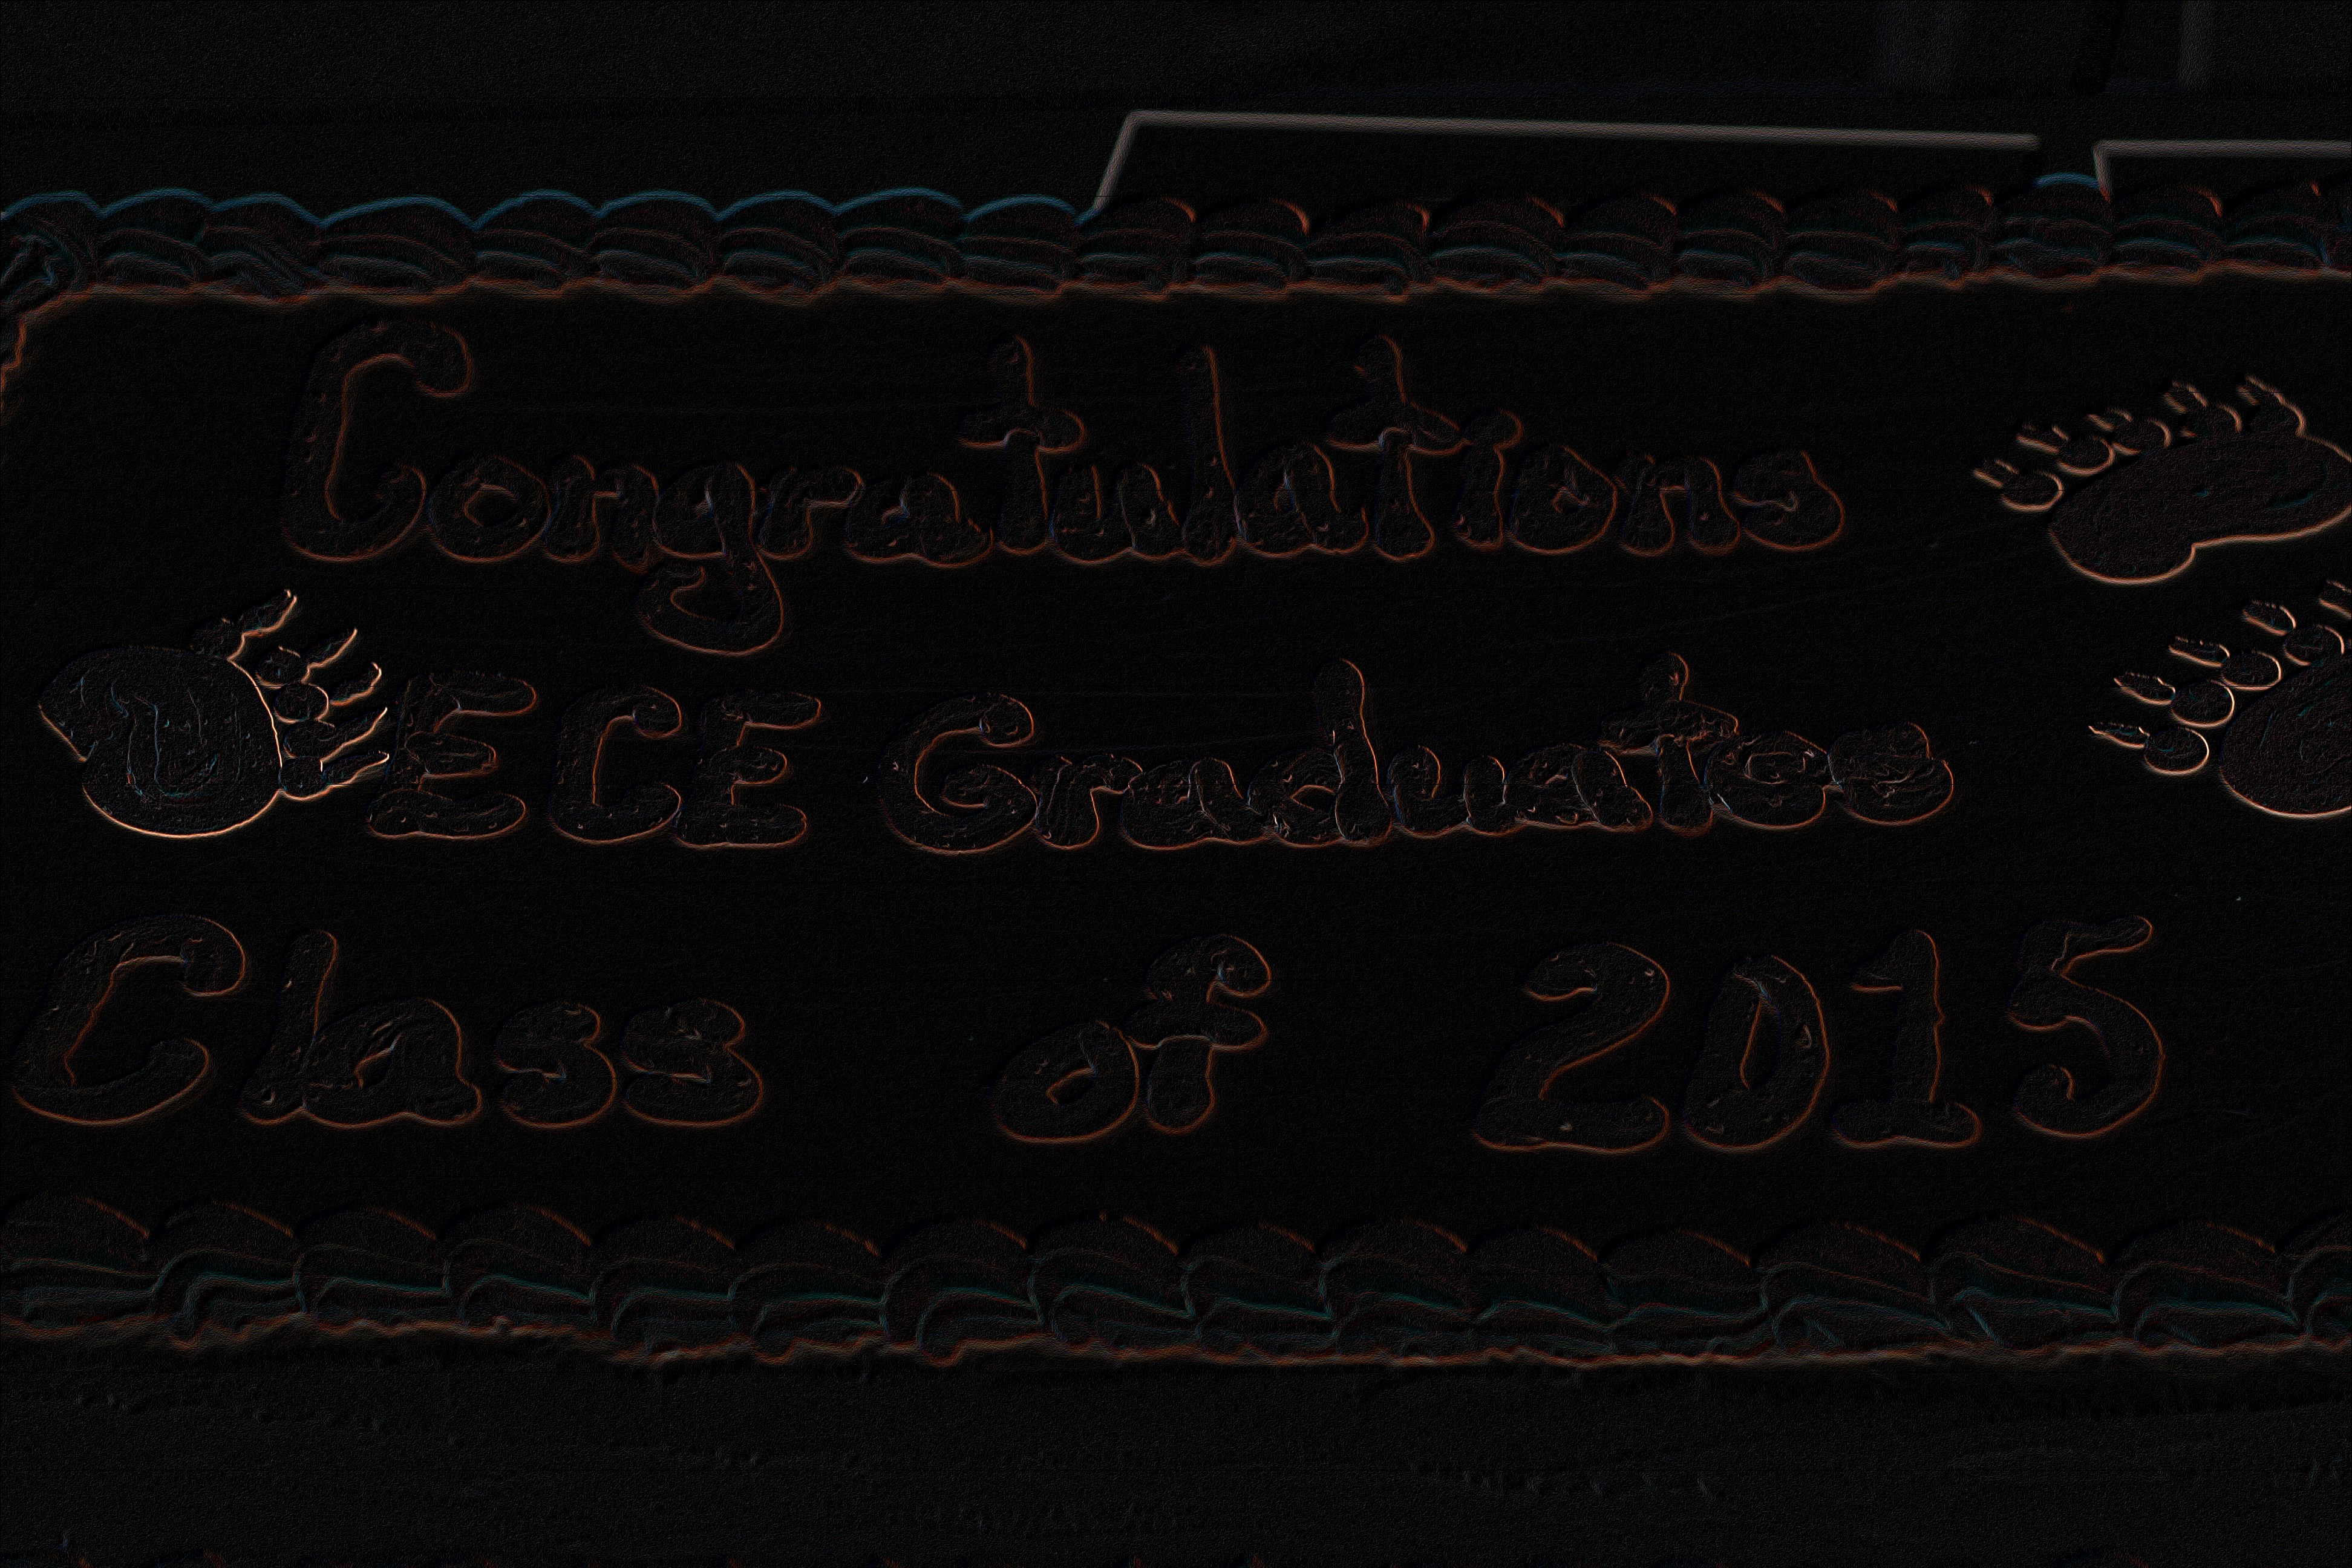 Congratulations
ECE Graduates
Class of 2015